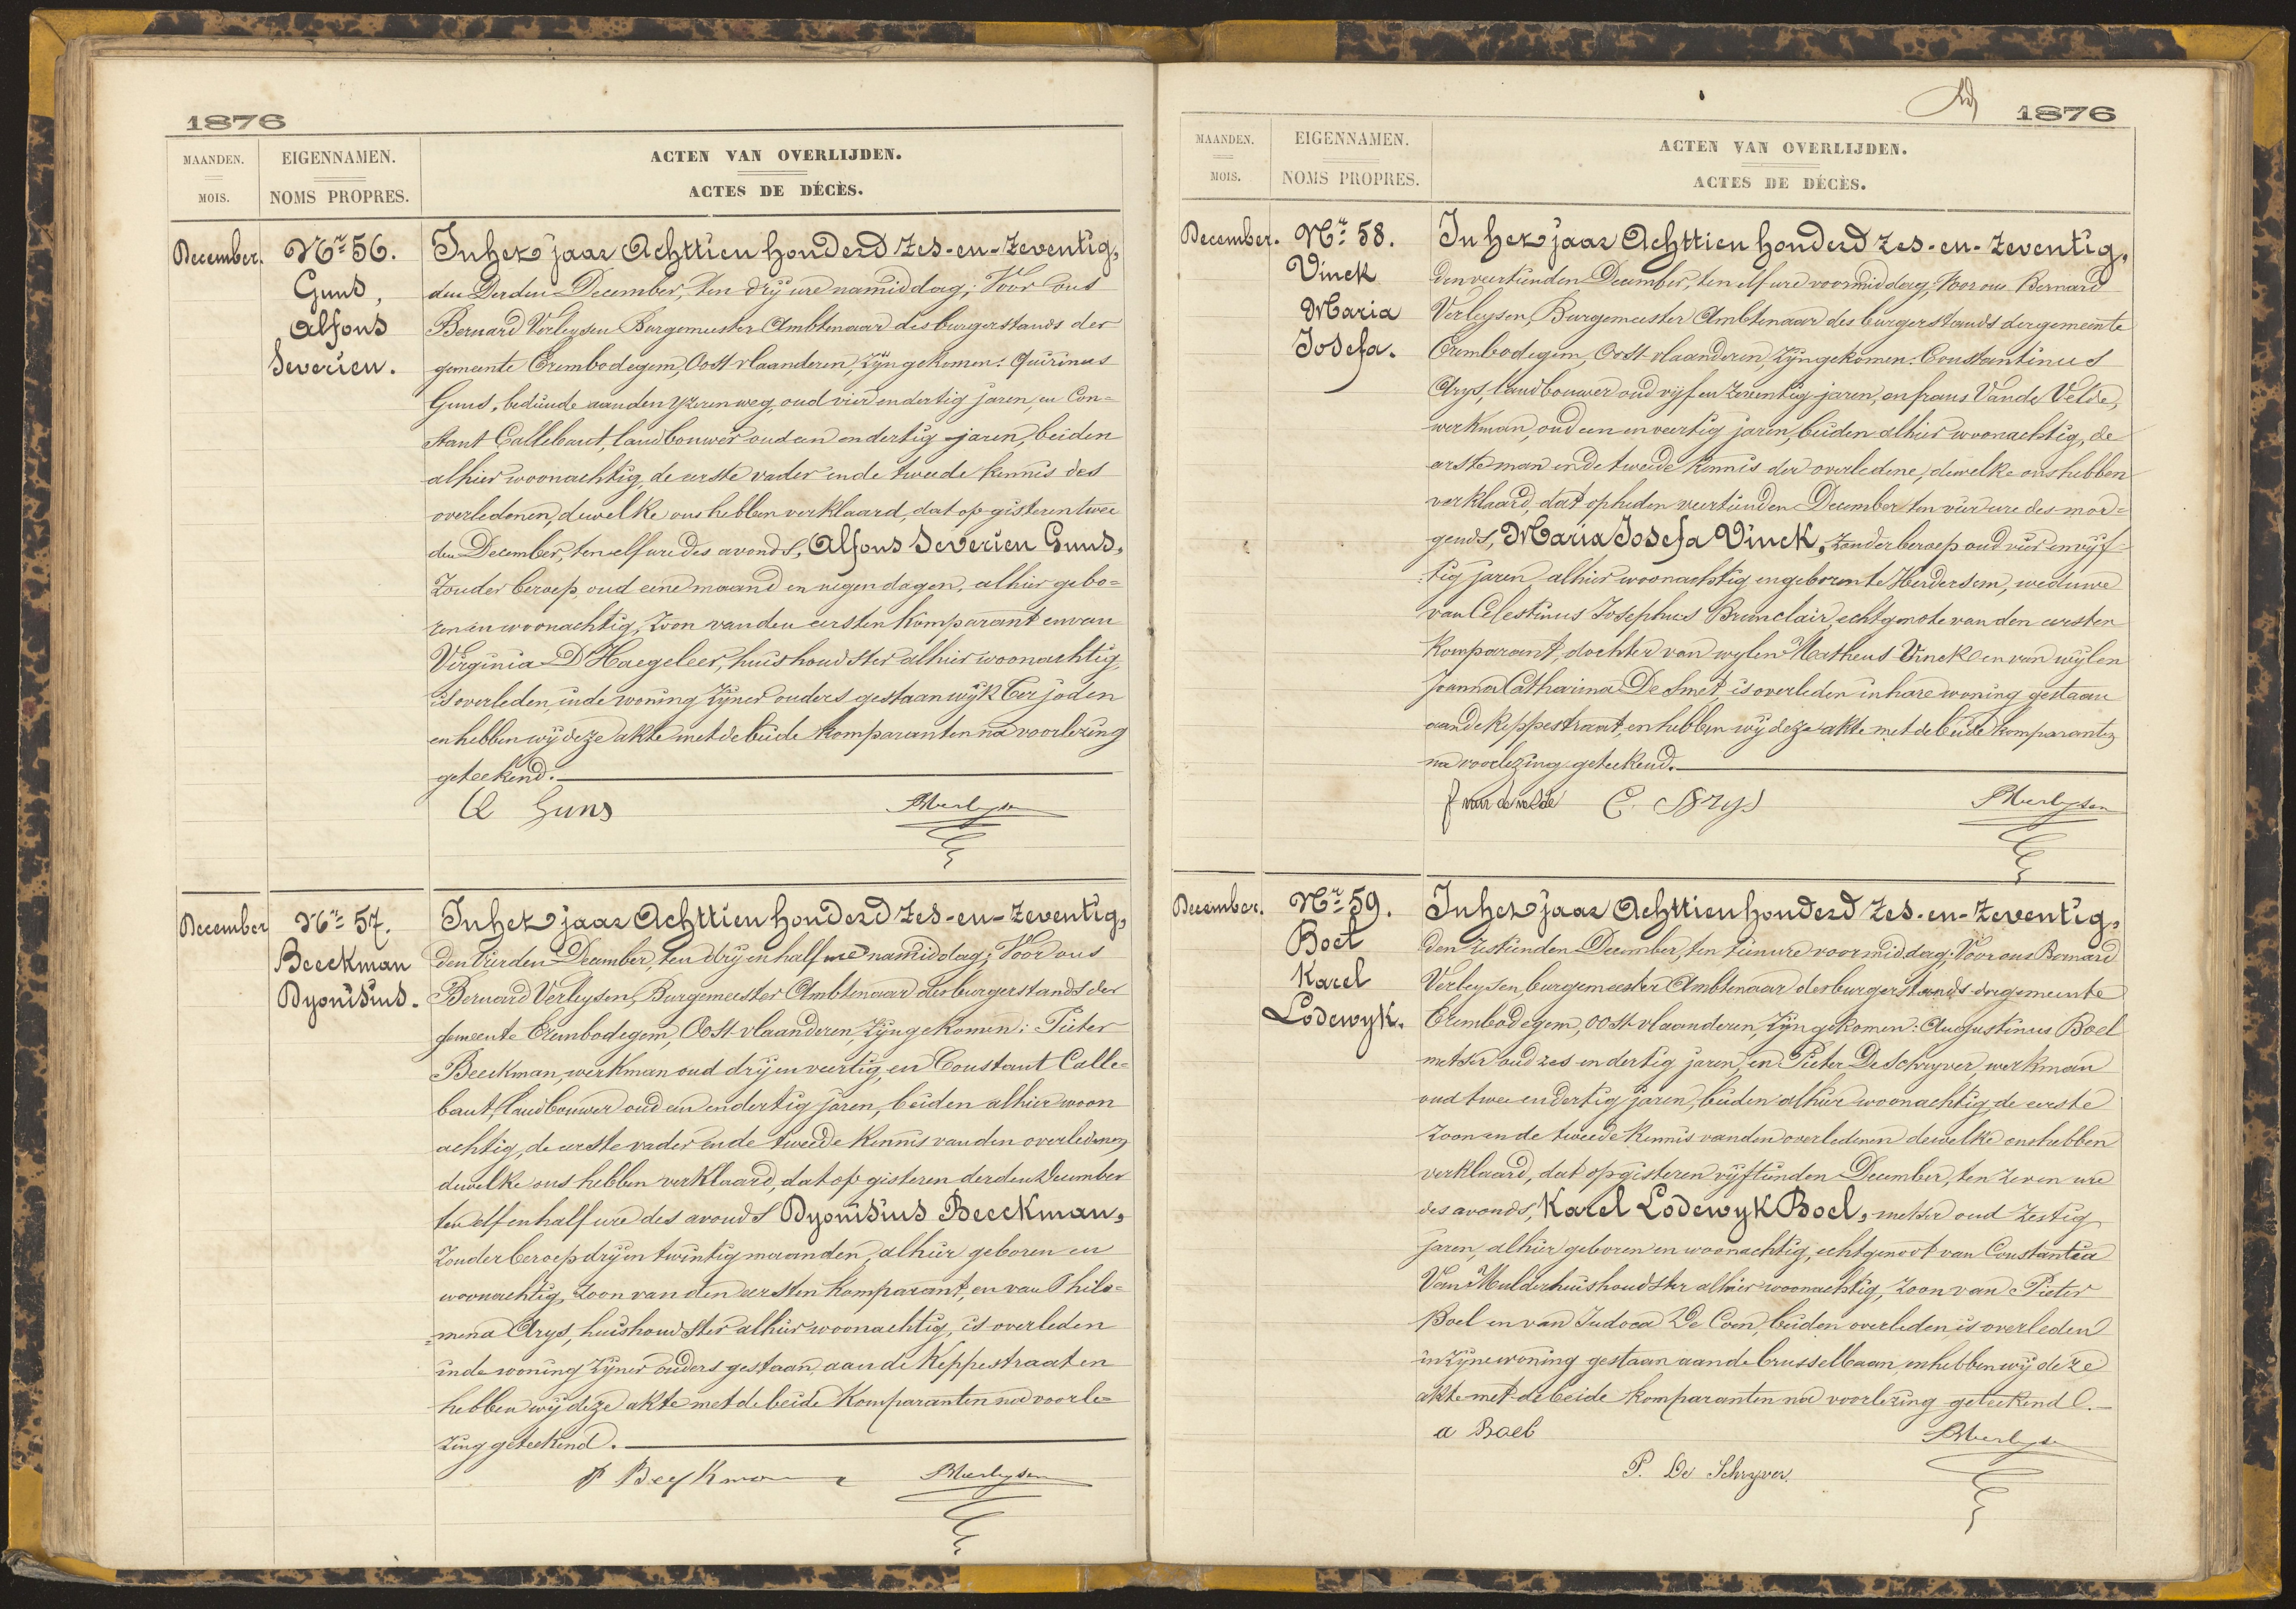 1876
MAANDEN.
MOIS.
EIGENNAMEN.
NOMS PROPRES.
ACTEN VAN OVERLIJDEN.
ACTES DE DÉCÈS.
December.
Nr 56.
Guns,
Alfons
Severien.
In het jaar Achttien honderd zes-en-zeventig,
den derden December, ten drij ure namiddag; Voor ons
Bernard Verleysen Burgemeester Ambtenaar des burgerstands der
gemeente Erembodegem, Oost-vlaanderen, zijn gekomen: Quirinus
Guns, bediende aan den yzeren weg, oud vier en dertig jaren, en Con=
stant Callebaut, landbouwer oud een en dertig jaren, beiden
alhier woonachtig, de eerste vader en de tweede kennis des
overledenen, dewelke ons hebben verklaard, dat op gisteren twee
den December, ten elf ure des avonds, Alfons Severien Guns,
zonder beroep, oud eene maand en negen dagen, alhier gebo=
ren en woonachtig, zoon van den eersten komparant en van
Virginia D'Haegeleer, huishoudster alhier woonachtig,
is overleden, in de woning zijner ouders gestaan wijk Terjoden
en hebben wij deze akte met de beide komparanten na voorlezing
geteekend.
Q Guns
BVerleysen
December
Nr 57.
Beeckman
Dyonisius.
In het jaar Achttien honderd zes-en-zeventig,
den vierden December, ten drij en half ure namiddag; Voor ons
Bernard Verleysen, Burgemeester Ambtenaar des burgerstands der
gemeente Erembodegem, Oost-vlaanderen, zijn gekomen: Pieter
Beeckman, werkman oud drij en veertig, en Constant Calle=
baut, landbouwer oud een en dertig jaren, beiden alhier woon
achtig, de eerste vader en de tweede kennis van den overledenen,
dewelke ons hebben verklaard, dat op gisteren derden December
ten elf en half ure des avonds Dyonisius Beeckman,
zonder beroep drij en twintig maanden, alhier geboren en
woonachtig, zoon van den eersten komparant, en van Philo=
=mena Arys, huishoudster alhier woonachtig, is overleden
in de woning zijner ouders gestaan aan de Keppestraat en
hebben wij deze akte met de beide komparanten na voorle=
zing geteekend.
P Beeckman
BVerleysen
1876
MAANDEN.
MOIS.
EIGENNAMEN.
NOMS PROPRES.
ACTEN VAN OVERLIJDEN.
ACTES DE DÉCÈS.
December.
Nr 58.
Vinck
Maria
Josefa.
In het jaar Achttien honderd zes-en-zeventig,
den veertienden December, ten elf ure voormiddag; Voor ons Bernard
Verleysen, Burgemeester Ambtenaar des burgerstands der gemeente
Erembodegem, Oost-vlaanderen, zijn gekomen: Constantinus
Arys, landbouwer oud vijf en zeventig jaren, en frans Van de Velde,
werkman, oud een en veertig jaren, beiden alhier woonachtig, de
eerste man en de tweede kennis der overledene, dewelke ons hebben
verklaard, dat op heden veertienden December ten vier ure des mor=
gends, Maria Josefa Vinck, zonder beroep oud vier en vijf=
tig jaren, alhier woonachtig en geboren te Herdersem, weduwe
van Celestinus Josephus Brunclair, echtgenote van den eersten
komparant, dochter van wylen Matheus Vinck en van wijlen
Joanna Catharina De Smet, is overleden in hare woning gestaan
aan de Keppestraat, en hebben wij deze akte met de beide komparanten
na voorlezing geteekend.
f van de velde C. Arys
BVerleysen
December.
Nr 59.
Boel
Karel
Lodewyk.
In het jaar Achttien honderd zes-en-zeventig,
den zestienden December, ten tien ure voormiddag; Voor ons Bernard
Verleysen, burgemeester Ambtenaar des burgerstands der gemeente
Erembodegem, Oost-vlaanderen, zijn gekomen: Augustinus Boel
metser oud zes en dertig jaren, en Pieter De Schryver, werkman
oud twee en dertig jaren, beiden alhier woonachtig, de eerste
zoon en de tweede kennis van den overledenen dewelke ons hebben
verklaard, dat op gisteren vijftienden December, ten zeven ure
des avonds, Karel Lodewyk Boel, metser oud zestig
jaren, alhier geboren en woonachtig, echtgenoot van Constantia
Van Mulder huishoudster alhier woonachtig, zoon van Pieter
Boel en van Judoca De Coen, beiden overleden is overleden
in zijne woning gestaan aan de brusselbaan, en hebben wij deze
akte met de beide komparanten na voorlezing geteekend.
a Boel
BVerleysen
P. De Schryver.